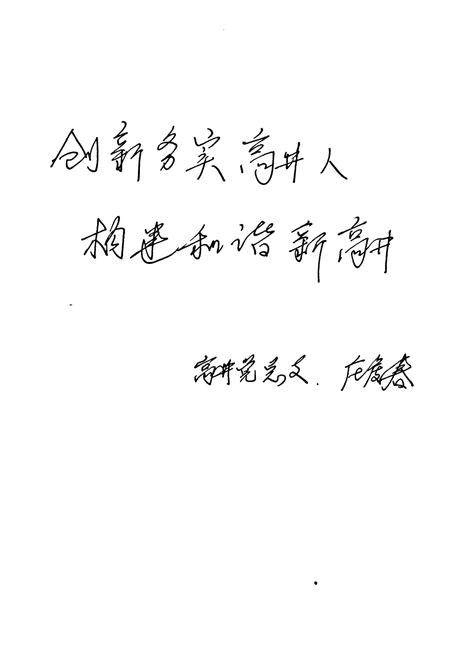 创新务实高井人
构建和谐新高井
高井党总支.